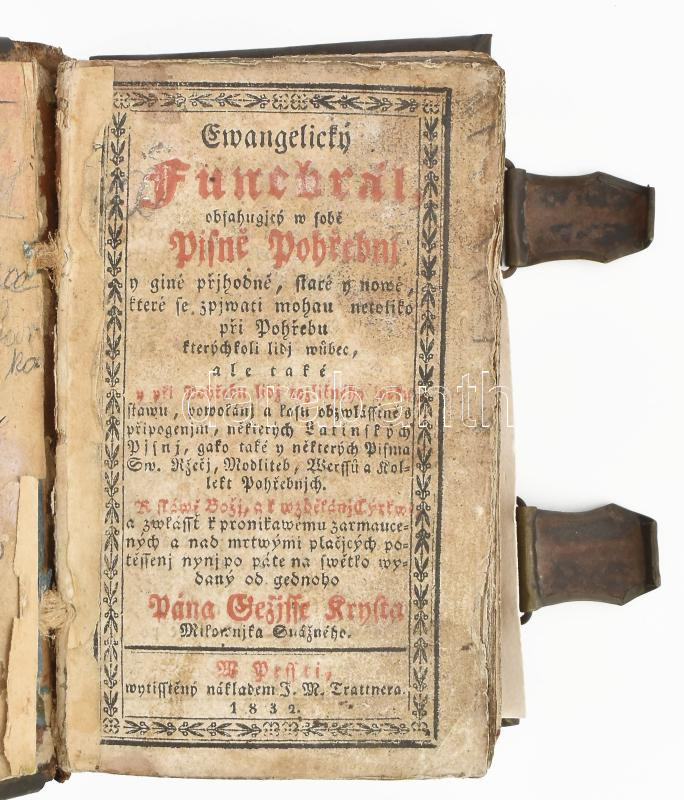 Ewangelický
Funebrál,
obsahugjcý w sobě
Pisně Pohřebnj
y giné přjhodné, staré y nowé,
které se zpjwati mohau netoliko
při Pohřebu
kterýchkoli lidj wůbec,
ale také
y při Pohřebu lidj rozličného
stawu, powolánj a času obzwlásstně s
připogenjm, některých Latinských
Pjsnj, gako také y některých Pisma
Sw. Ržečj, Modliteb, Werssů a Kol-
lekt Pohřebnjch.
K sláwě Božj, a k wzdělánj Cyrkwe
a zwlásst k pronikawému zarmauce-
ných a nad mrtwými plačjcých po-
těssenj nynj po páte na swětlo wy-
daný od gednoho
Pána Gežjsse Krysta
Milownjka Snážného.
W Pessti,
wytisstěný nákladem J. M. Trattnera.
1832.
darabanth